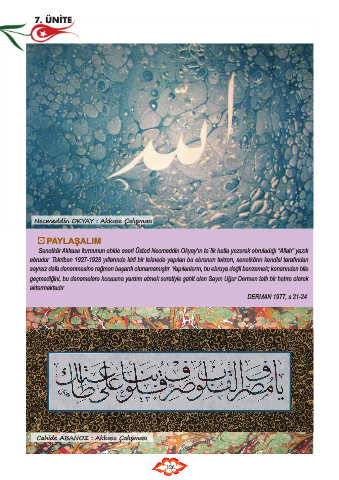 7. ÜNİTE
الله
Necmeddin OKYAY : Akkase Çalışması
PAYLAŞALIM
Sanatkâr Akkase formunun abide eseri Üstad Necmeddin Okyay'ın ta'lik hatla yazarak ebruladığı "Allah" yazılı
ebrudur. Takriben 1927-1928 yıllarında latif bir tesirade yapılan bu ebrunun tekrarı, sanatkârın kendisi tarafından
sayısız defa denenmesine rağmen başarılı olunamamıştır. Yapılanların, bu ebruya değil benzemek; kenarından bile
geçmediğini, bu denemelere kısmen yardım etmek suretiyle şahit olan Sayın Uğur Derman tatlı bir hatıra olarak
aktarmaktadır
DERMAN 1977, s 21-24
يا مصرف القلوب صرف قلوبنا على طاعتك
Cahide ABANOZ : Akkase Çalışması